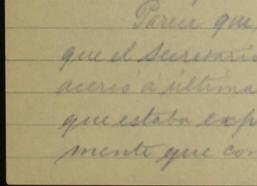 Parece que
que el Secretario
acercó á última
que estaba exp
mente que con